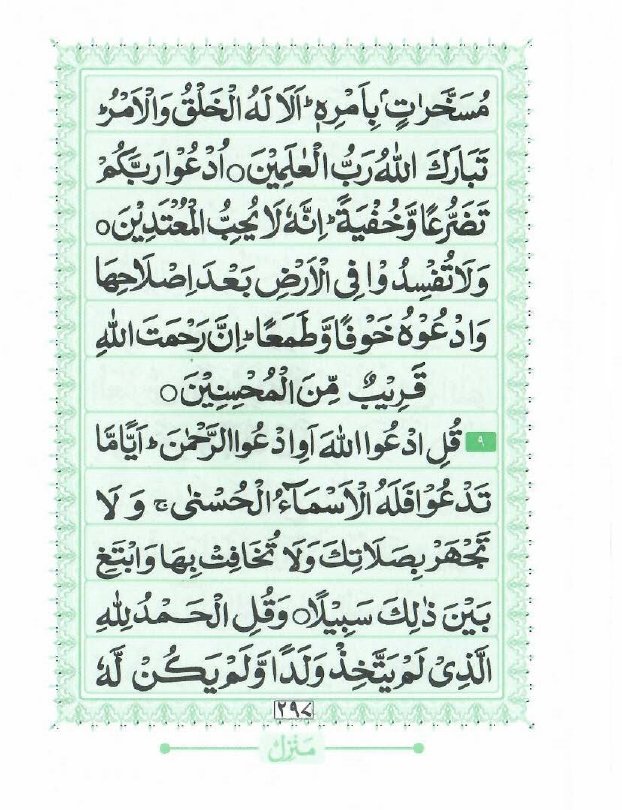 مُسَخَّرٰتٍۭ بِاَمْرِهٖ ؕ اَلَا لَهُ الْخَلْقُ وَالْاَمْرُ ؕ
تَبَارَكَ اللّٰهُ رَبُّ الْعٰلَمِيْنَ ○ اُدْعُوْا رَبَّكُمْ
تَضَرُّعًا وَّخُفْيَةً ؕ اِنَّهٗ لَا يُحِبُّ الْمُعْتَدِيْنَ ○
وَلَا تُفْسِدُوْا فِى الْاَرْضِ بَعْدَ اِصْلَاحِهَا
وَادْعُوْهُ خَوْفًا وَّطَمَعًا ؕ اِنَّ رَحْمَتَ اللّٰهِ
قَرِيْبٌ مِّنَ الْمُحْسِنِيْنَ ○
٩ قُلِ ادْعُوا اللّٰهَ اَوِ ادْعُوا الرَّحْمٰنَ ؕ اَيًّا مَّا
تَدْعُوْا فَلَهُ الْاَسْمَآءُ الْحُسْنٰى ۚ وَلَا
تَجْهَرْ بِصَلَاتِكَ وَلَا تُخَافِتْ بِهَا وَابْتَغِ
بَيْنَ ذٰلِكَ سَبِيْلًا ○ وَقُلِ الْحَمْدُ لِلّٰهِ
الَّذِىْ لَمْ يَتَّخِذْ وَلَدًا وَّلَمْ يَكُنْ لَّهٗ
٢٩٧
مَنْزِل